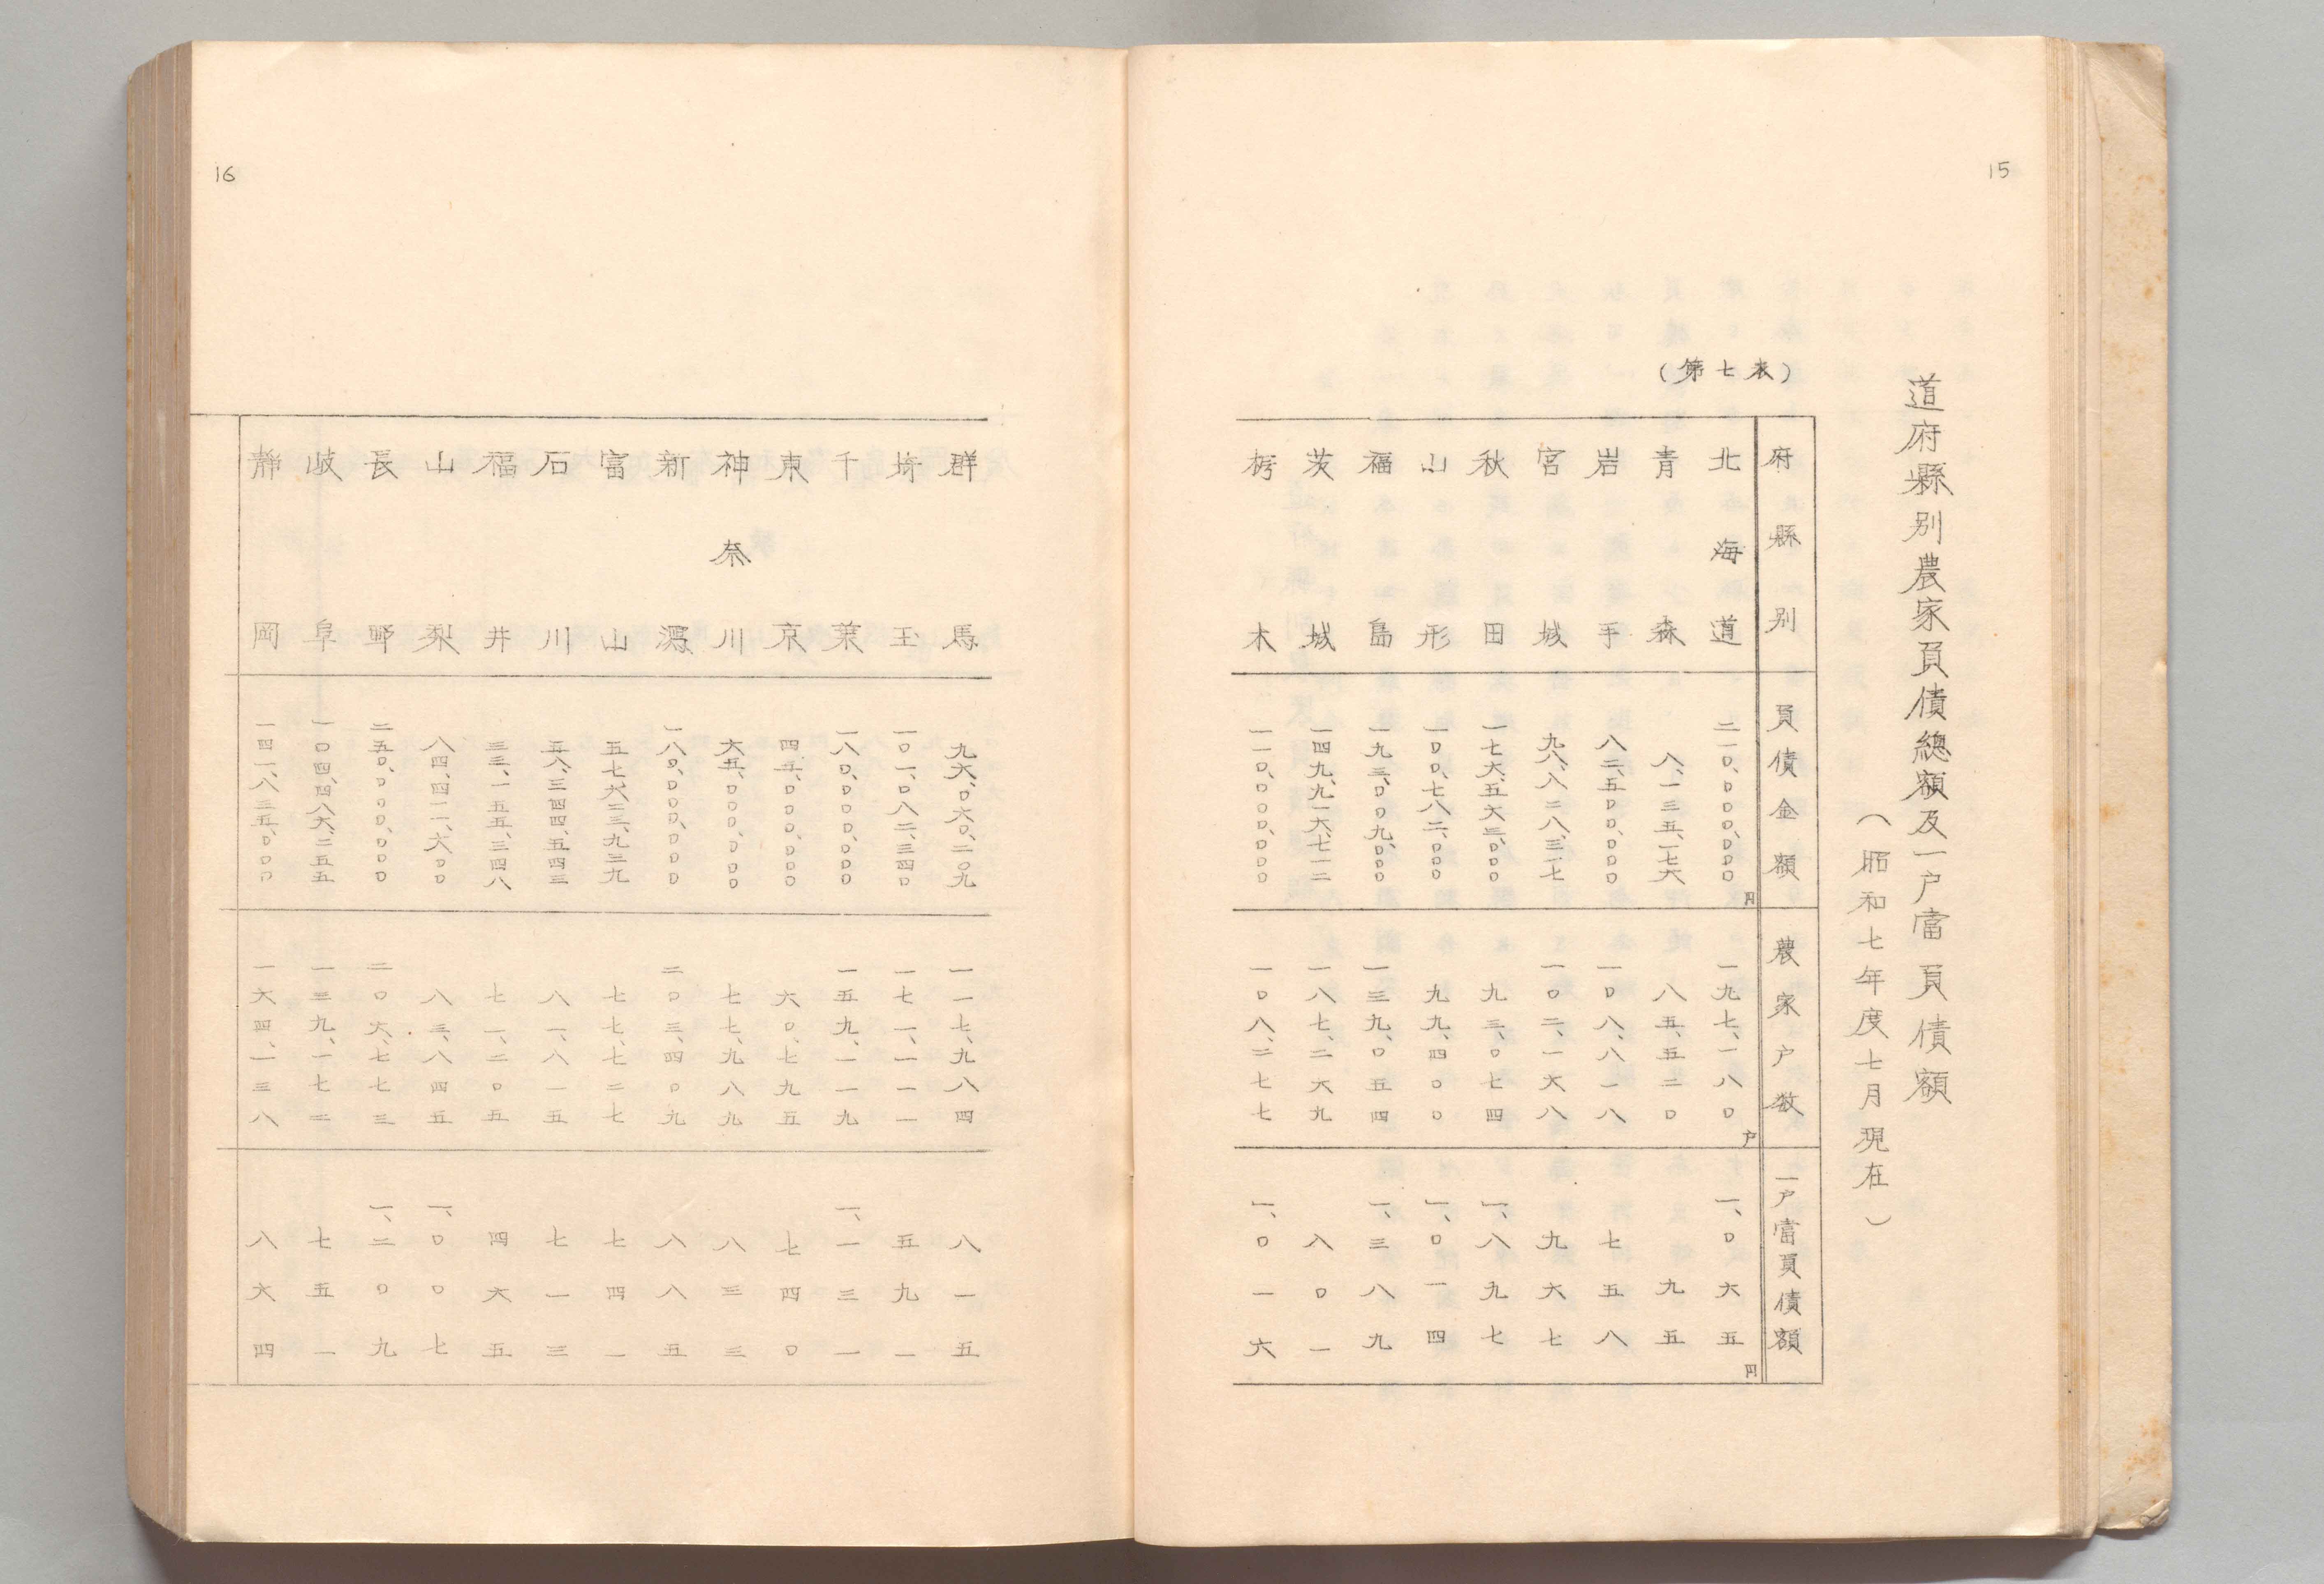 15
道府縣別農家負債總額及一戸當負債額
（昭和七年度七月現在）
（第七表）
府縣別 負債金額 農家戸数 一戸當負債額
北海道 二一〇、〇〇〇、〇〇〇円 一九七、一八〇戸 一、〇六五円
青森 八、一三五、一七六 八五、五二〇 九五
岩手 八二、五〇〇、〇〇〇 一〇八、八一八 七五八
宮城 九八、八二八、三一七 一〇二、一六八 九六七
秋田 一七六、五六三、〇〇〇 九三、〇七四 一、八九七
山形 一〇〇、七八二、〇〇〇 九九、四〇〇 一、〇一四
福島 一九三、〇〇九、〇〇〇 一三九、〇五四 一、三八九
茨城 一四九、九一六、七一二 一八七、二六九 八〇一
栃木 一一〇、〇〇〇、〇〇〇 一〇八、二七七 一、〇一六
16
群馬 九六、〇六〇、二〇九 一一七、九八四 八一五
埼玉 一〇一、〇八二、三四〇 一七一、一一一 五九一
千葉 一八〇、〇〇〇、〇〇〇 一五九、一一九 一、一三一
東京 四五、〇〇〇、〇〇〇 六〇、七九五 七四〇
神奈川 六五、〇〇〇、〇〇〇 七七、九八九 八三三
新潟 一八〇、〇〇〇、〇〇〇 二〇三、四〇九 八八五
富山 五七、六三三、九三九 七七、七二七 七四一
石川 五八、三四四、五四三 八一、八一五 七一三
福井 三三、一五五、三四八 七一、二〇五 四六五
山梨 八四、四一一、六〇〇 八三、八四五 一、〇〇七
長野 二五〇、〇〇〇、〇〇〇 二〇六、七七三 一、二〇九
岐阜 一〇四、四八六、二五五 一三九、一七二 七五一
静岡 一四一、八三五、〇〇〇 一六四、一三八 八六四